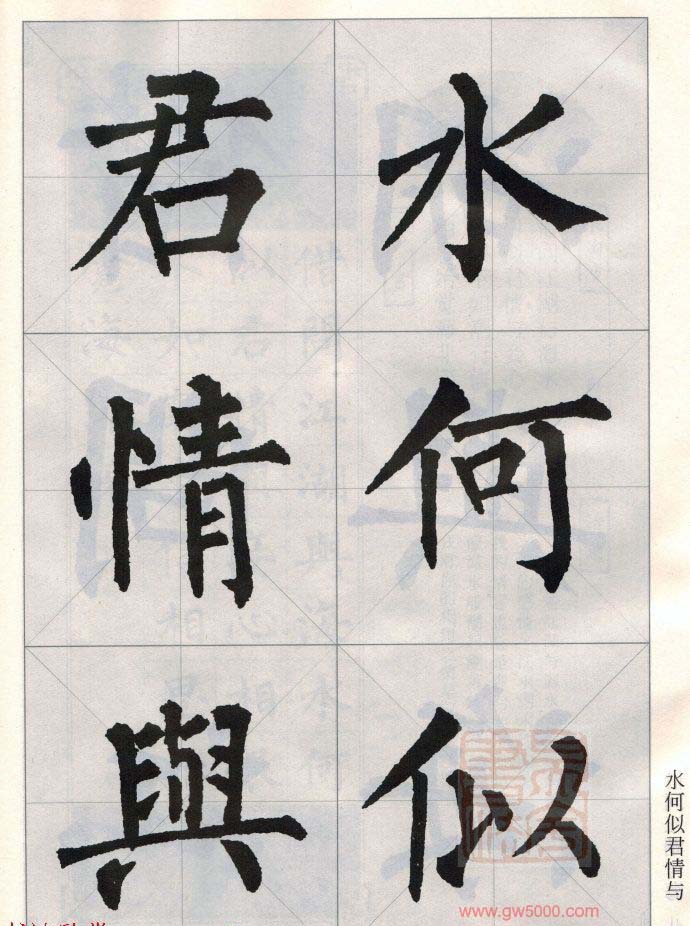 水何似
君情與
水何似君情与
www.gw5000.com